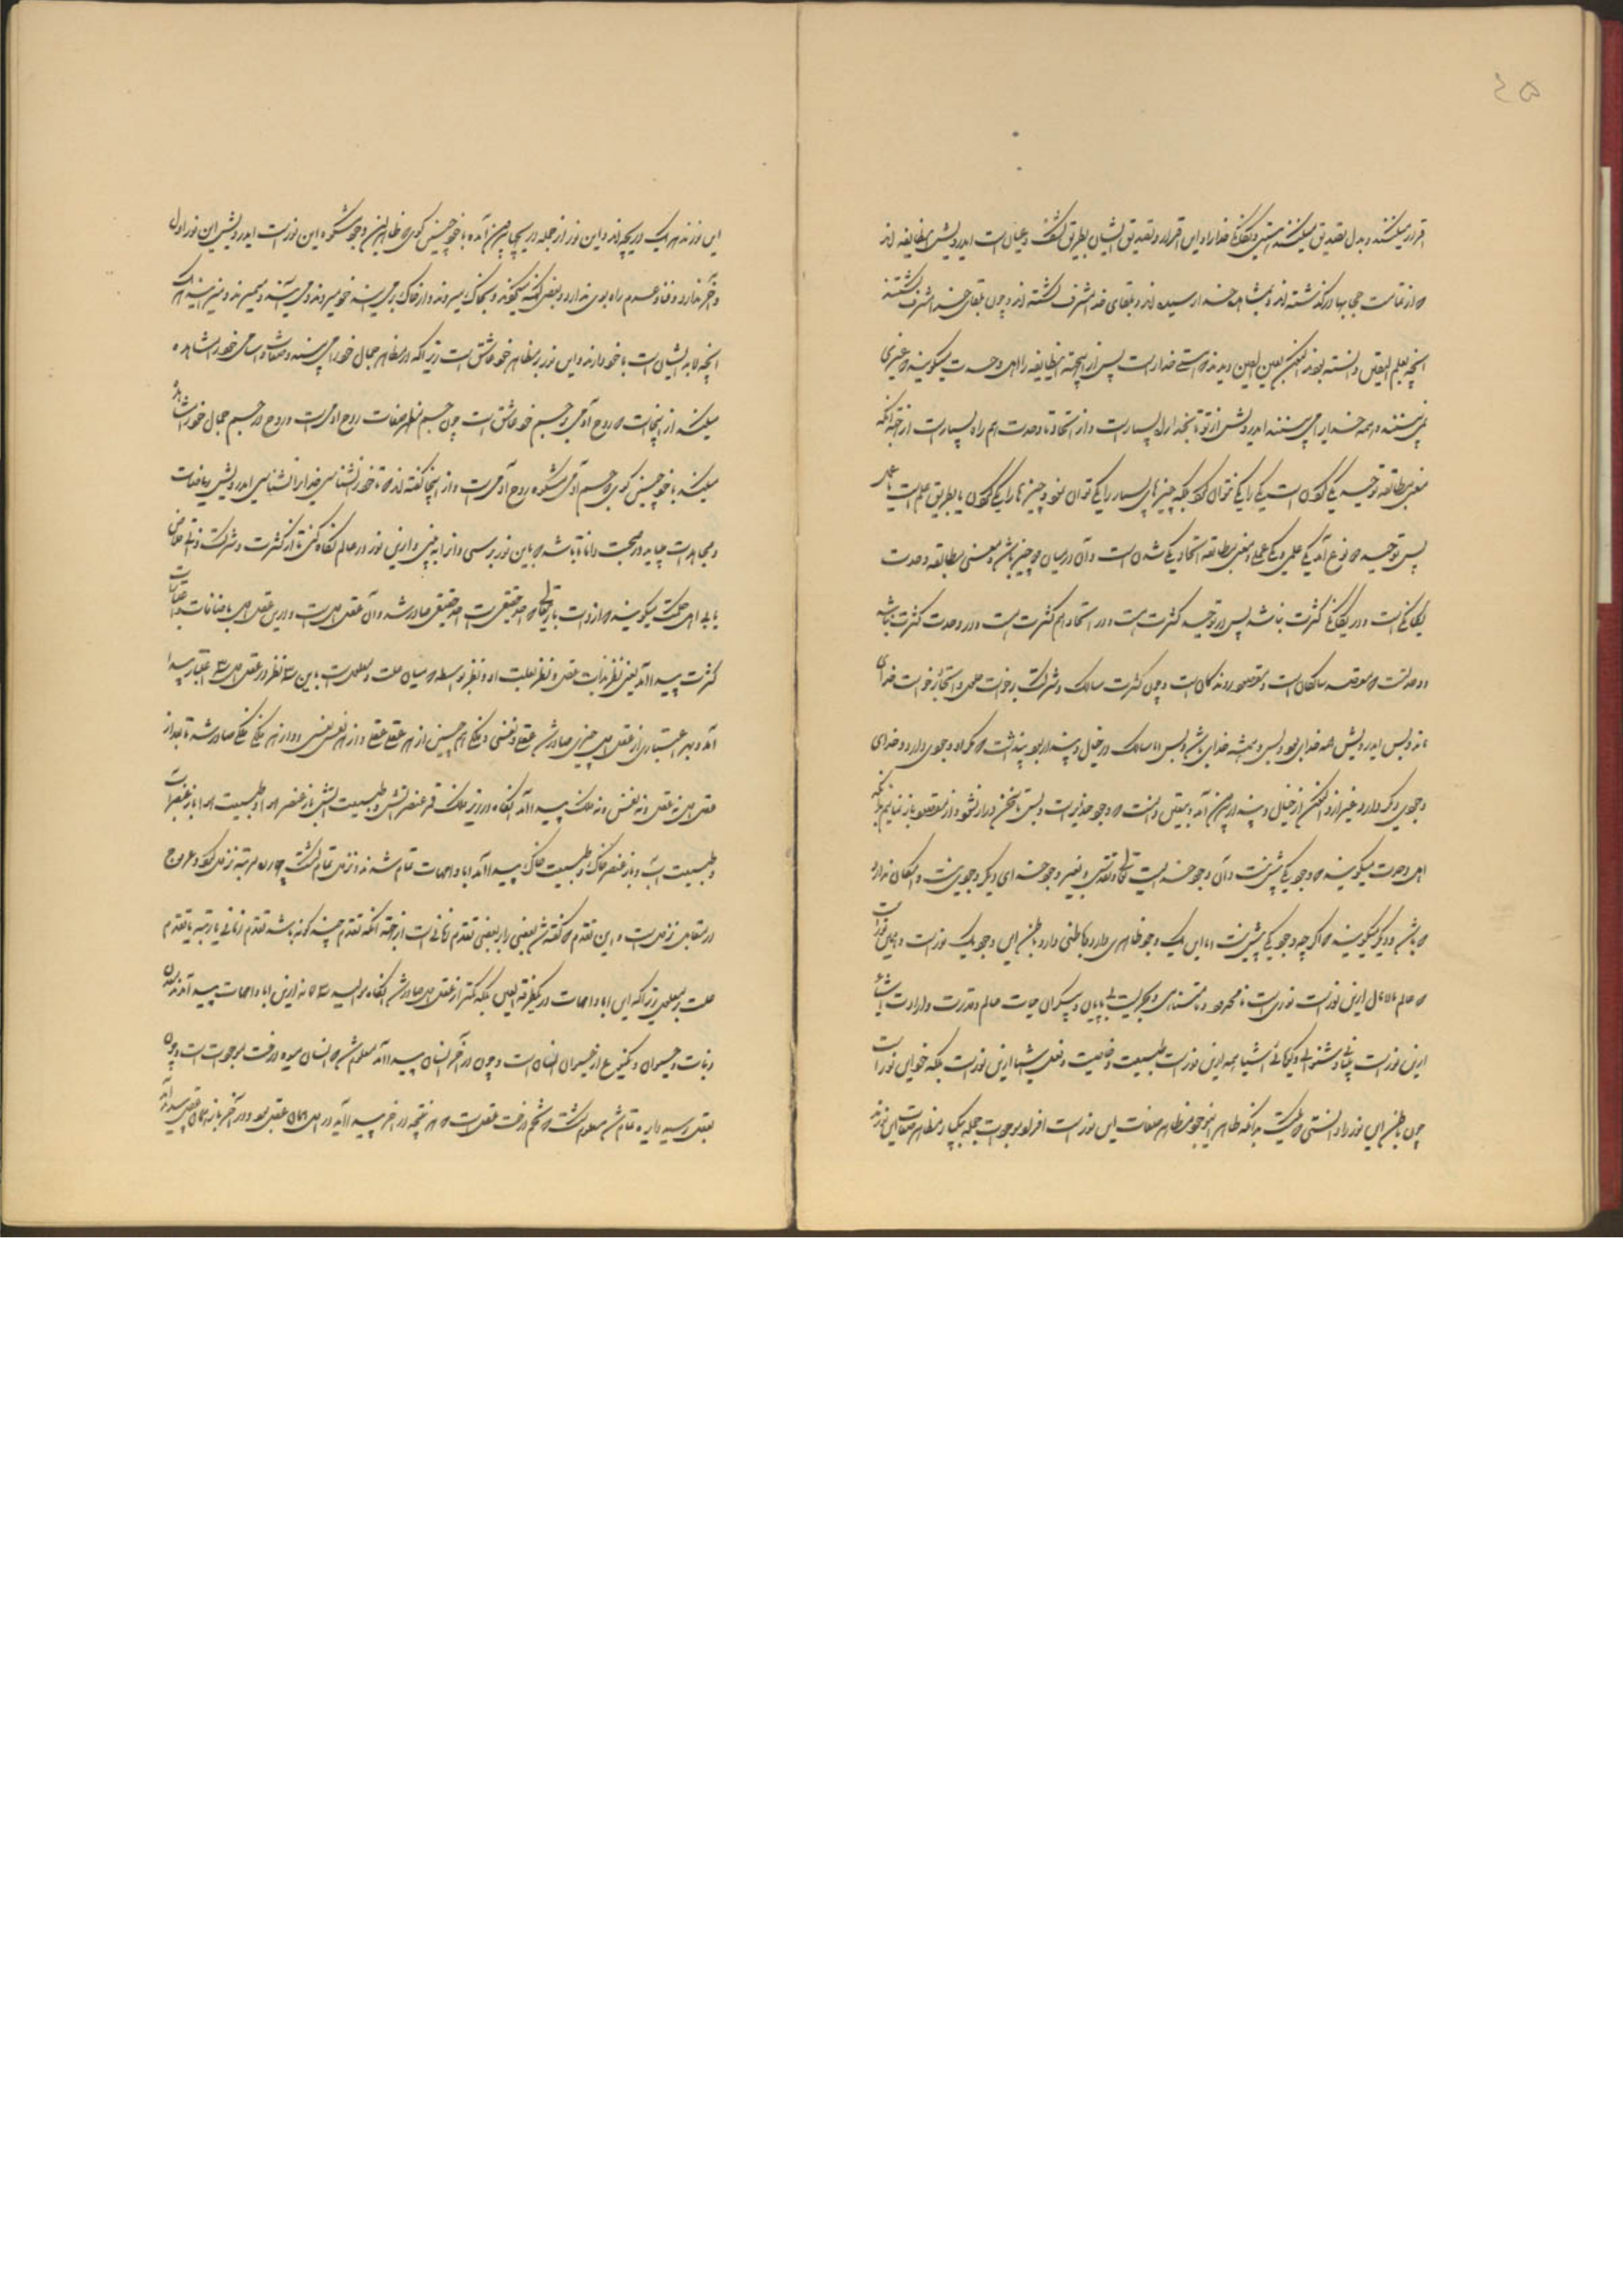 ۴۵
اقرار میکنند و بدل تصدیق میکنند هستی و یگانگی خدا را و این اقرار و تصدیق ایشان بطریق کشف و عیان است ای درویش این طایفه اند
که از تمامت حجابها درگذشته اند و بمشاهده خدا رسیده اند و بلقای خدا مشرف گشته اند و چون بلقای خدا مشرف گشتند
آنچه بعلم الیقین دانسته بودند اکنون بعین الیقین دیدند که هستی خدا راست پس از اینجهة این طایفه را اهل وحدت میگویند که غیری
نمی بینند و همه خدا می بینند ای درویش از تو تا بخدا راه بسیار است و از اتحاد تا وحدت هم راه بسیار است از جهة آنکه
معنی مطابقه توحید یکی کردن است یکی را یکی نتوان کرد بلکه چیزهای بسیار را یکی توان نمود و چیزها را یکی کردن یا بطریق علم است یا عمل
پس توحید دو نوع آمد یکی علمی و یکی عملی و معنی مطابقه اتحاد یکی شدن است و آن در میان دو چیز باشد و معنی مطابقه وحدت
یگانگی است و در یگانگی کثرت نباشد پس در توحید کثرت است و در اتحاد هم کثرت است و در وحدت کثرت نباشد
و وحدتست که مقصد سالکان است و مقصود روندگان است و چون کثرت سالک و شرک برخواست حلول و اتحاد برخواست خدای
ماند و بس ای درویش همه خدای بود و بس و همیشه خدای باشد و بس اما سالک در خیال و پندار بود پنداشت که او وجودی دارد و خدای
وجودی دیگر دارد غیر از او اکنون از خیال و پندار بیرون آمد و بیقین دانست که وجود خدایراست و بس تا سخن دراز نشود و از مقصود باز نمانیم بدانکه
اهل وحدت میگویند که وجود یکی بیش نیست و آن وجود خداست تعالی و تقدس و بغیر وجود خدای دیگر وجودی نیست و امکان ندارد
که باشد و دیگر میگویند که اگر چه وجود یکی بیش نیست اما این یک وجود ظاهری دارد و باطنی دارد باطن این وجود یک نور است و این نور است
که عالم مالامال ازین نور است نوری است نامحدود و نامتناهی و بحریست بی پایان و بیکران حیات عالم و قدرت و ارادت اشیاء
ازین نور است بینائی و شنوائی و گویائی اشیا همه ازین نور است طبیعت و خاصیت و فعل اشیا ازین نور است بلکه خود این نور است
چون باطن این نور را دانستی که چیست بدانکه ظاهر این وجود مظاهر صفات این نور است افراد موجودات جمله بیکبار مظاهر صفات این نورند
این نورند هر یک دریچه اند و این نور از جمله دریچها بیرون آمده با خود چنین گوی که ظاهر این وجود مشکوة این نور است ای درویش این نور اول
و آخر ندارد و فنا و عدم راه بوی ندارد و بعضی گفته میگویند و بخاک میروند و از خاک برمی آیند خود میروند و می آیند و نیز نیستند
آنچه لابد ایشان است با خود دارند و این نور بر مظاهر خود عاشق است زیرا که در مظاهر جمال خود را می بیند و صفات و اسامی خود را مشاهده
میکند از اینجاست که روح آدمی بر جسم خود عاشق است چون جسم مظهر صفات روح آدمی است و روح در جسم جمال خود را مشاهده
میکند با خود چنین گوی که جسم آدمی مشکوة روح آدمی است و از اینجا گفته اند که تا خود را نشناسی خدا را نشناسی ای درویش ریاضات
و مجاهدات میباید در صحبت دانا تا باشد که باین نور برسی و او را به بینی و ازین نور در عالم نگاه کنی تا از کثرت و شرک توانی خلاص
یابی اهل حکمت میگویند که از ذات باریتعالی که احد حقیقی است احد حقیقی صادر شد و آن عقل اول است و در این عقل اول باضافات و اعتبارات
کثرت پیدا آمد یعنی نظر بذات عقل و نظر بعلت او و نظر بواسطه که میان علت و معلول است باین سه نظر در عقل اول سه اعتبار پیدا
آمد و بهر اعتباری از عقل اول چیزی صادر شد عقلی و نفسی و فلکی همچنین از هر عقلی عقلی و از هر نفسی نفسی و از هر فلکی فلکی صادر شد تا بعد از
عقل اول نه عقل و نه نفس و نه فلک پیدا آمد آنگاه در زیر فلک قمر عنصر آتش و طبیعت آتش باز عنصر هوا و طبیعت هوا باز عنصر آب
و طبیعت آب و باز عنصر خاک و طبیعت خاک پیدا آمد آباء و امهات تمام شدند و نزول تمام گشت چهارده مرتبه نزول کرد و عروج
در مقابل نزول است و این تقدم که گفته شد بعضی را بر بعضی تقدم زمانی است از جهة آنکه تقدم چند گونه باشد تقدم زمانی یا رتبه یا تقدم
علت بر معلول زیرا که این آباء و امهات در یکطرفة العین بلکه کمتر از عقل اول صادر شد آنگاه موالید سه گانه ازین آباء و امهات پیدا آمدند معدن
و نبات و حیوان و یکنوع از حیوان انسان است و چون در آخر انسان پیدا آمد معلوم شد که انسان میوه درخت موجودات است و چون
بعقل رسید دایره تمام شد معلوم گشت که تخم درخت عقل است که هر نتیجه در آخر پیدا آید در اول همان عقل بود و در آخر باز همان عقل پیدا آمد